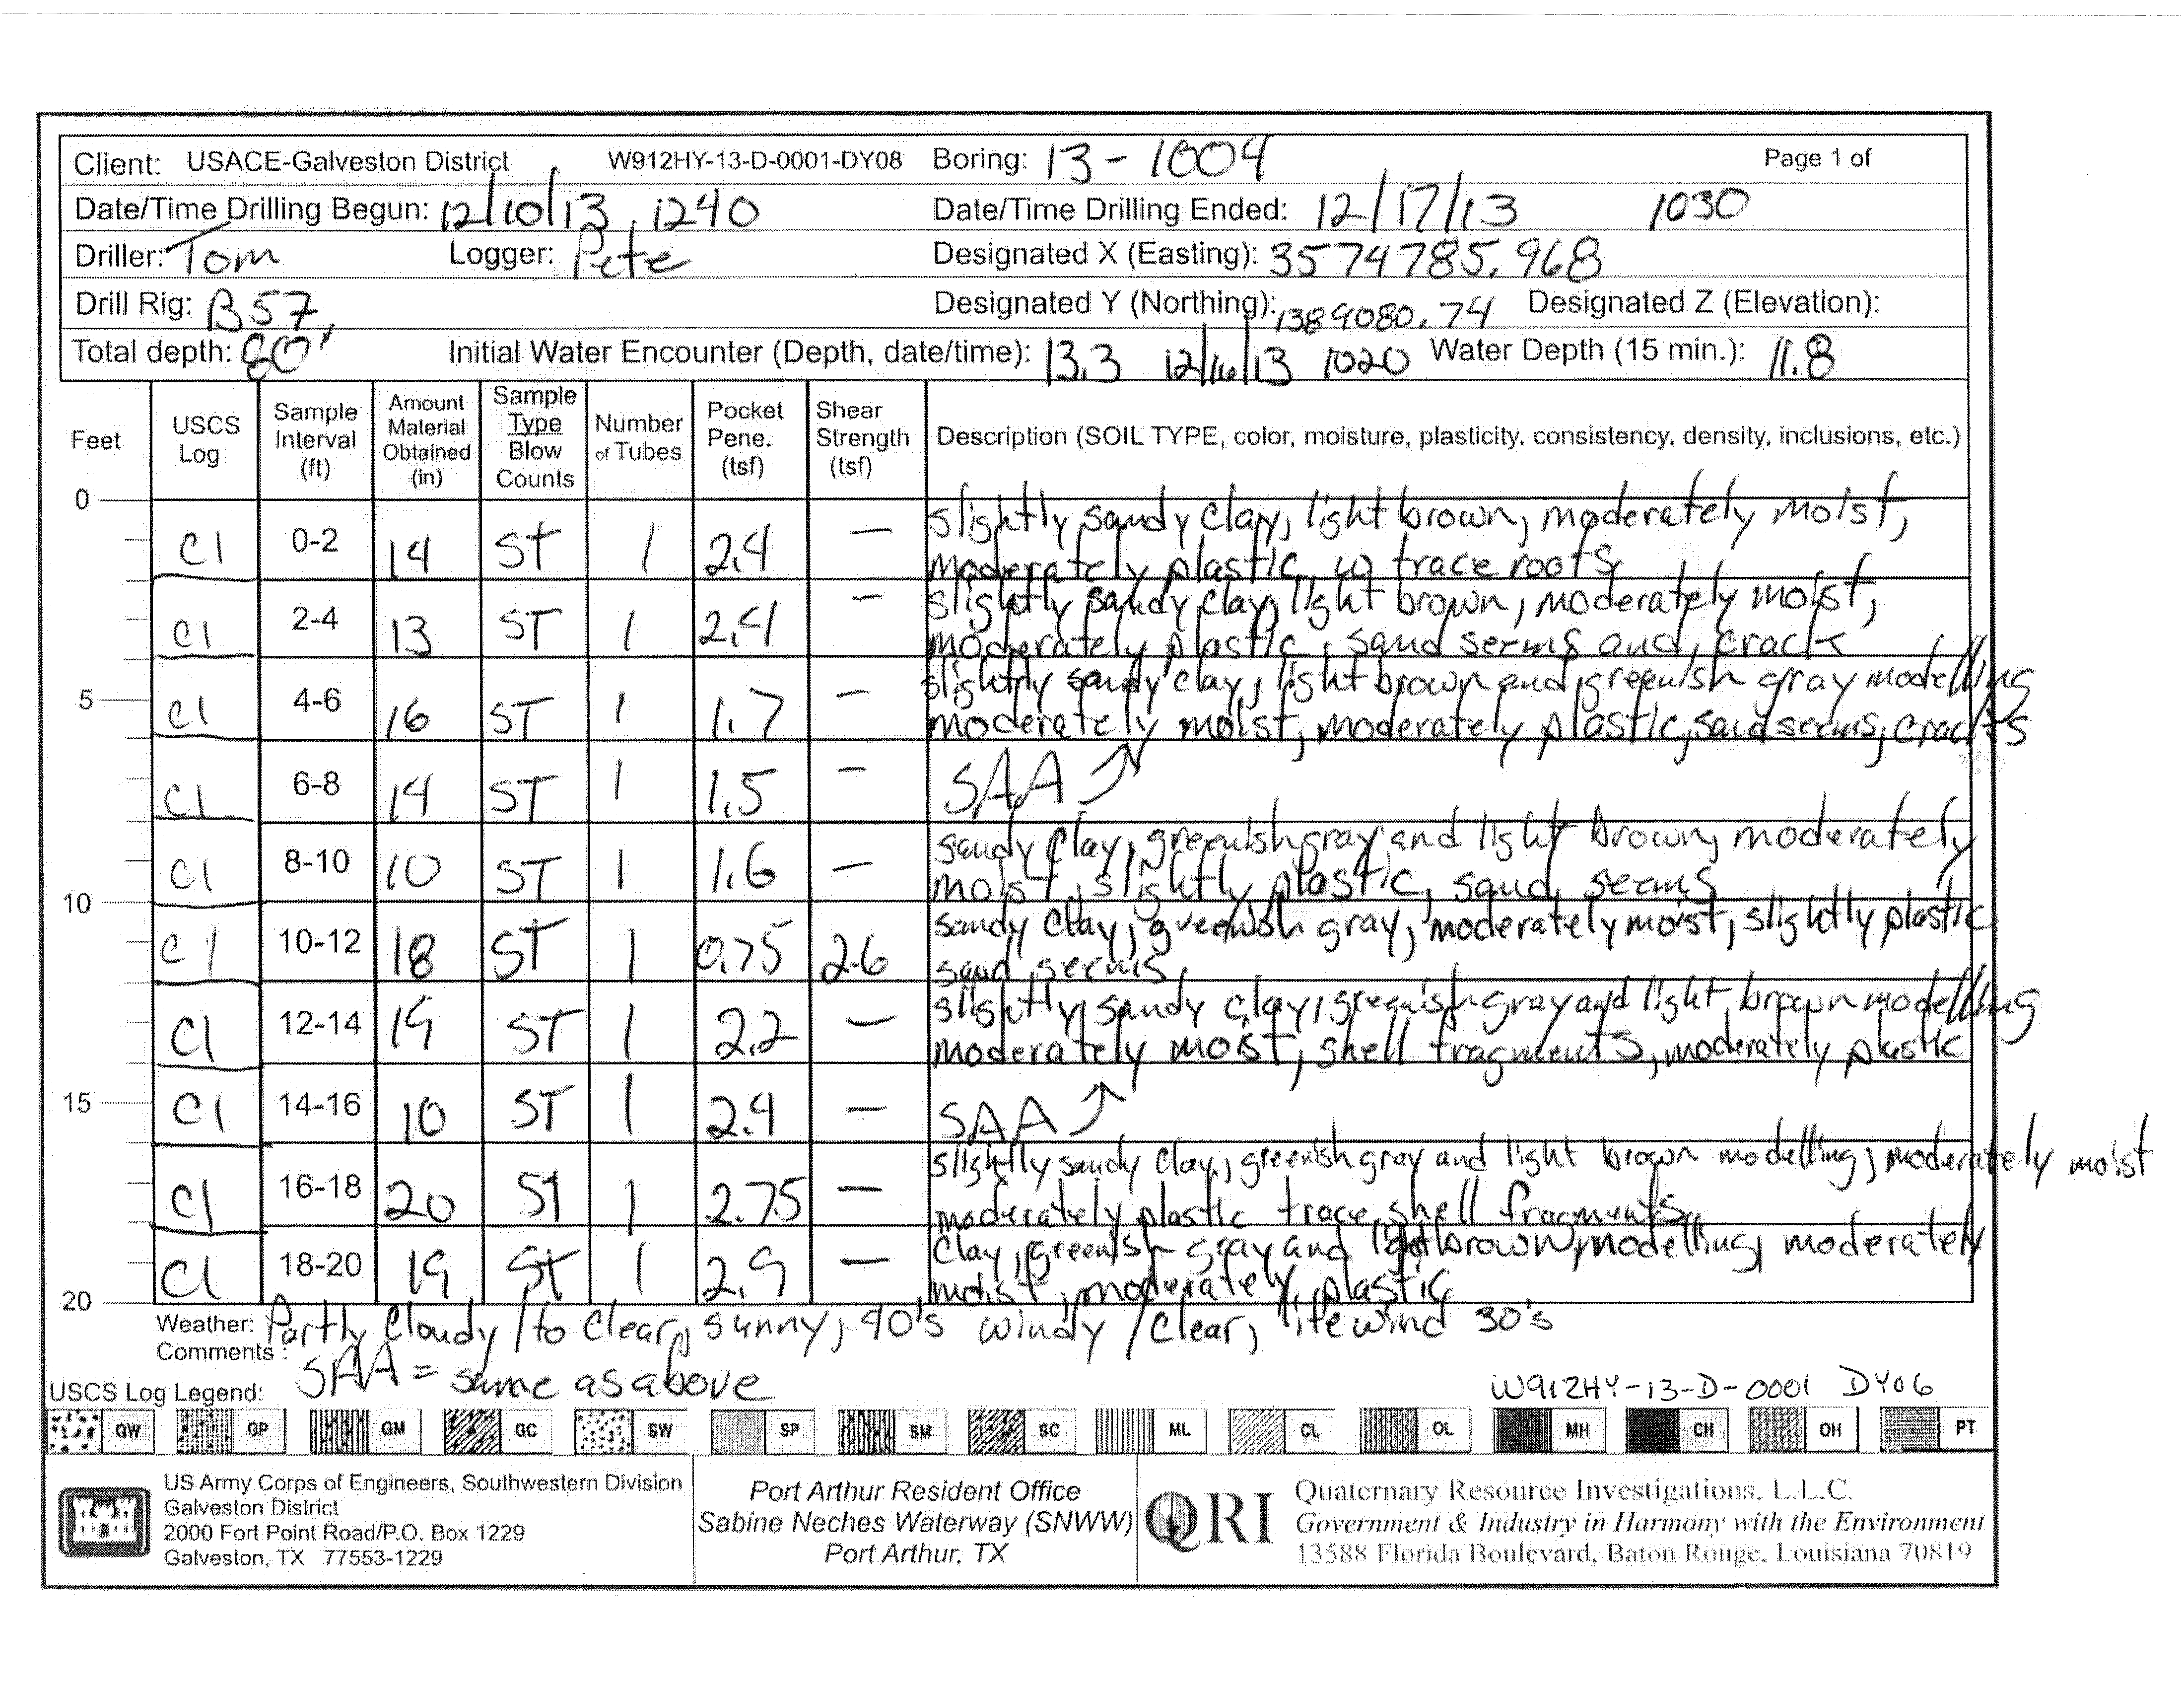 Client: USACE-Galveston District W912HY-13-D-0001-DY08 Boring: 13-1004 Page 1 of
Date/Time Drilling Begun: 12/10/13, 1240 Date/Time Drilling Ended: 12/17/13 1030
Driller: Tom Logger: Pete Designated X (Easting): 3574785.968
Drill Rig: B57, Designated Y (Northing): 1389080.74 Designated Z (Elevation):
Total depth: 80' Initial Water Encounter (Depth, date/time): 13.3 12/16/13 1020 Water Depth (15 min.): 11.8
Feet USCS Log Sample Interval (ft) Amount Material Obtained (in) Sample Type Blow Counts Number of Tubes Pocket Pene. (tsf) Shear Strength (tsf) Description (SOIL TYPE, color, moisture, plasticity, consistency, density, inclusions, etc.)
0
Cl 0-2 14 ST 1 2.4 — slightly sandy clay, light brown, moderately moist,
moderately plastic, w trace roots
Cl 2-4 13 ST 1 2.4 — slightly sandy clay, light brown, moderately moist,
moderately plastic, sand serms and, crack
5
Cl 4-6 16 ST 1 1.7 — slightly sandy clay, light brown and greenish gray modelling
moderately moist, moderately plastic, sand seems, cracks
Cl 6-8 14 ST 1 1.5 — SAA ↑
Cl 8-10 10 ST 1 1.6 — sandy clay, greenish gray and light brown, moderately
moist, slightly plastic, sand seems
10
Cl 10-12 18 ST 1 0.75 2.6 sandy clay, greenish gray, moderately moist, slightly plastic
sand seems
Cl 12-14 19 ST 1 2.2 — slightly sandy clay, greenish gray and light brown modelling
moderately moist, shell fragments, moderately plastic
15
Cl 14-16 10 ST 1 2.4 — SAA ↑
Cl 16-18 20 ST 1 2.75 — slightly sandy clay, greenish gray and light brown modelling, moderately moist
moderately plastic trace shell fragments
Cl 18-20 19 ST 1 2.9 — Clay, greenish gray and light brown, modelling, moderately
moist, moderately plastic
20
Weather: Partly Cloudy /to Clear, sunny, 40's windy / Clear, lite wind 30's
Comments: SAA = same as above
USCS Log Legend: W912HY-13-D-0001 DY06
GW GP GM GC SW SP SM SC ML CL OL MH CH OH PT
US Army Corps of Engineers, Southwestern Division
Galveston District
2000 Fort Point Road/P.O. Box 1229
Galveston, TX 77553-1229
Port Arthur Resident Office
Sabine Neches Waterway (SNWW)
Port Arthur, TX
QRI
Quaternary Resource Investigations, L.L.C.
Government & Industry in Harmony with the Environment
13588 Florida Boulevard, Baton Rouge, Louisiana 70819